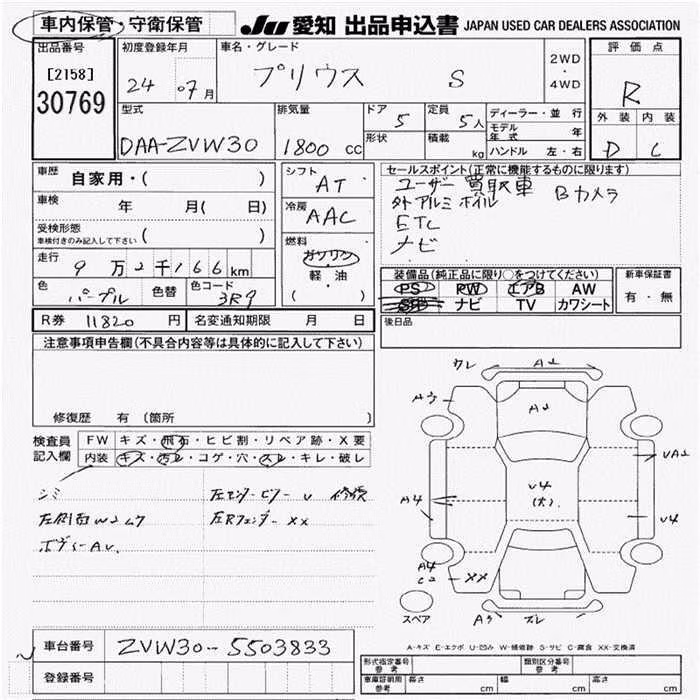 車内保管・守衛保管 JU 愛知 出品申込書 JAPAN USED CAR DEALERS ASSOCIATION
出品番号 初度登録年月 車名・グレード 2WD・4WD 評価点
[2158] 24 07月 プリウス S R
30769
型式 排気量 ドア 定員 ディーラー・並行 外装 内装
DAA-ZVW30 1800cc 5 5人 モデル年式 年 D C
形状 積載 kg ハンドル 左・右
車歴 自家用・( ) シフト AT セールスポイント(正常に機能するものに限ります)
車検 年 月( 日) 冷房 AAC ユーザー買取車 Bカメラ
外アルミホイル
受検形態 車検付きのみ記入して下さい ( ) ETC
燃料 ガソリン・軽・油 ( ) ナビ
走行 9万2千166km
装備品(純正品に限り○をつけてください) 新車保証書
色 パープル 色替 色コード 3R9 PS PW エアB AW 有・無
ナビ TV カワシート
R券 11820円 名変通知期限 月 日 後日品
注意事項申告欄(不具合内容等は具体的に記入して下さい)
修復歴 有 (箇所 )
検査員記入欄 FW キズ・飛石・ヒビ割・リペア跡・X要
内装 キズ・汚レ・コゲ・穴・スレ・キレ・破レ
シミ 左センターピラー U 修復
左側面W2ムラ 左Rフェンダー XX
ボディーAU.
ワレ A2
Aウ A2
UA2
A4 U4 (大) U4
A4
C2 XX
スペア
A-キズ E-エクボ U-凹み W-補修跡 S-サビ C-腐食 XX-交換済
車台番号 ZVW30-5503833
登録番号 形式指定番号 参考 類別区分番号 参考
車庫証明用 参考 長さ cm 幅 cm 高さ cm